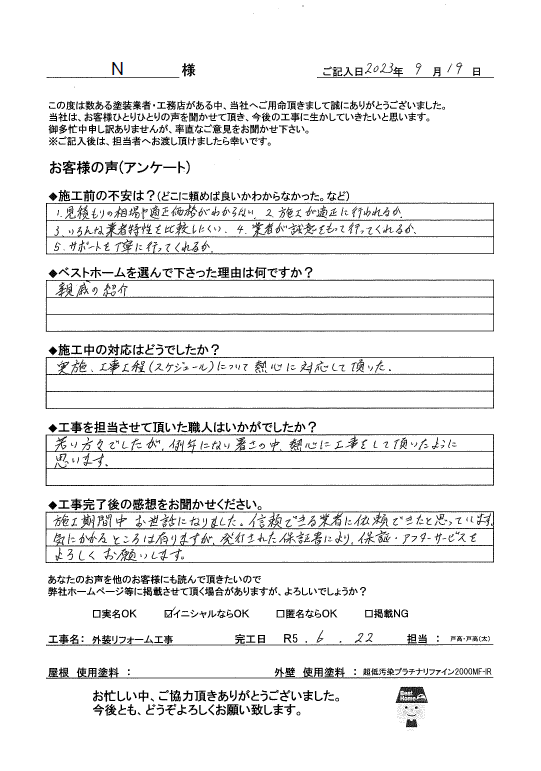 N 様 ご記入日 2023年 9 月 19 日
この度は数ある塗装業者・工務店がある中、当社へご用命頂きまして誠にありがとうございました。
当社は、お客様ひとりひとりの声を聞かせて頂き、今後の工事に生かしていきたいと思います。
御多忙中申し訳ありませんが、率直なご意見をお聞かせ下さい。
※ご記入後は、担当者へお渡し頂けましたら幸いです。
お客様の声(アンケート)
◆施工前の不安は?(どこに頼めば良いかわからなかった。など)
1.見積もりの相場や適正価格がわからない. 2. 施工が適正に行われるか.
3.いろんな業者特性を比較したい. 4. 業者が誠意をもって行ってくれるか.
5.サポートを丁寧に行ってくれるか.
◆ベストホームを選んで下さった理由は何ですか?
親戚の紹介
◆施工中の対応はどうでしたか?
実施、工事工程(スケジュール)について熱心に対応して頂いた.
◆工事を担当させて頂いた職人はいかがでしたか?
若い方々でしたが、例年にない暑さの中、熱心に工事をして頂いたように
思います.
◆工事完了後の感想をお聞かせください。
施工期間中お世話になりました。信頼できる業者に依頼できたと思っています.
気にかかるところは有りますが、発行された保証書により、保証・アフターサービスを
よろしくお願いします。
あなたのお声を他のお客様にも読んで頂きたいので
弊社ホームページ等に掲載させて頂く場合がありますが、よろしいでしょうか?
□実名OK ☑イニシャルならOK □匿名ならOK □掲載NG
工事名: 外装リフォーム工事 完工日 R5 . 6 . 22 担当: 戸高・戸高(太)
屋根 使用塗料: 外壁 使用塗料: 超低汚染プラチナリファイン2000MF-IR
お忙しい中、ご協力頂きありがとうございました。
今後とも、どうぞよろしくお願い致します。
Best
Home